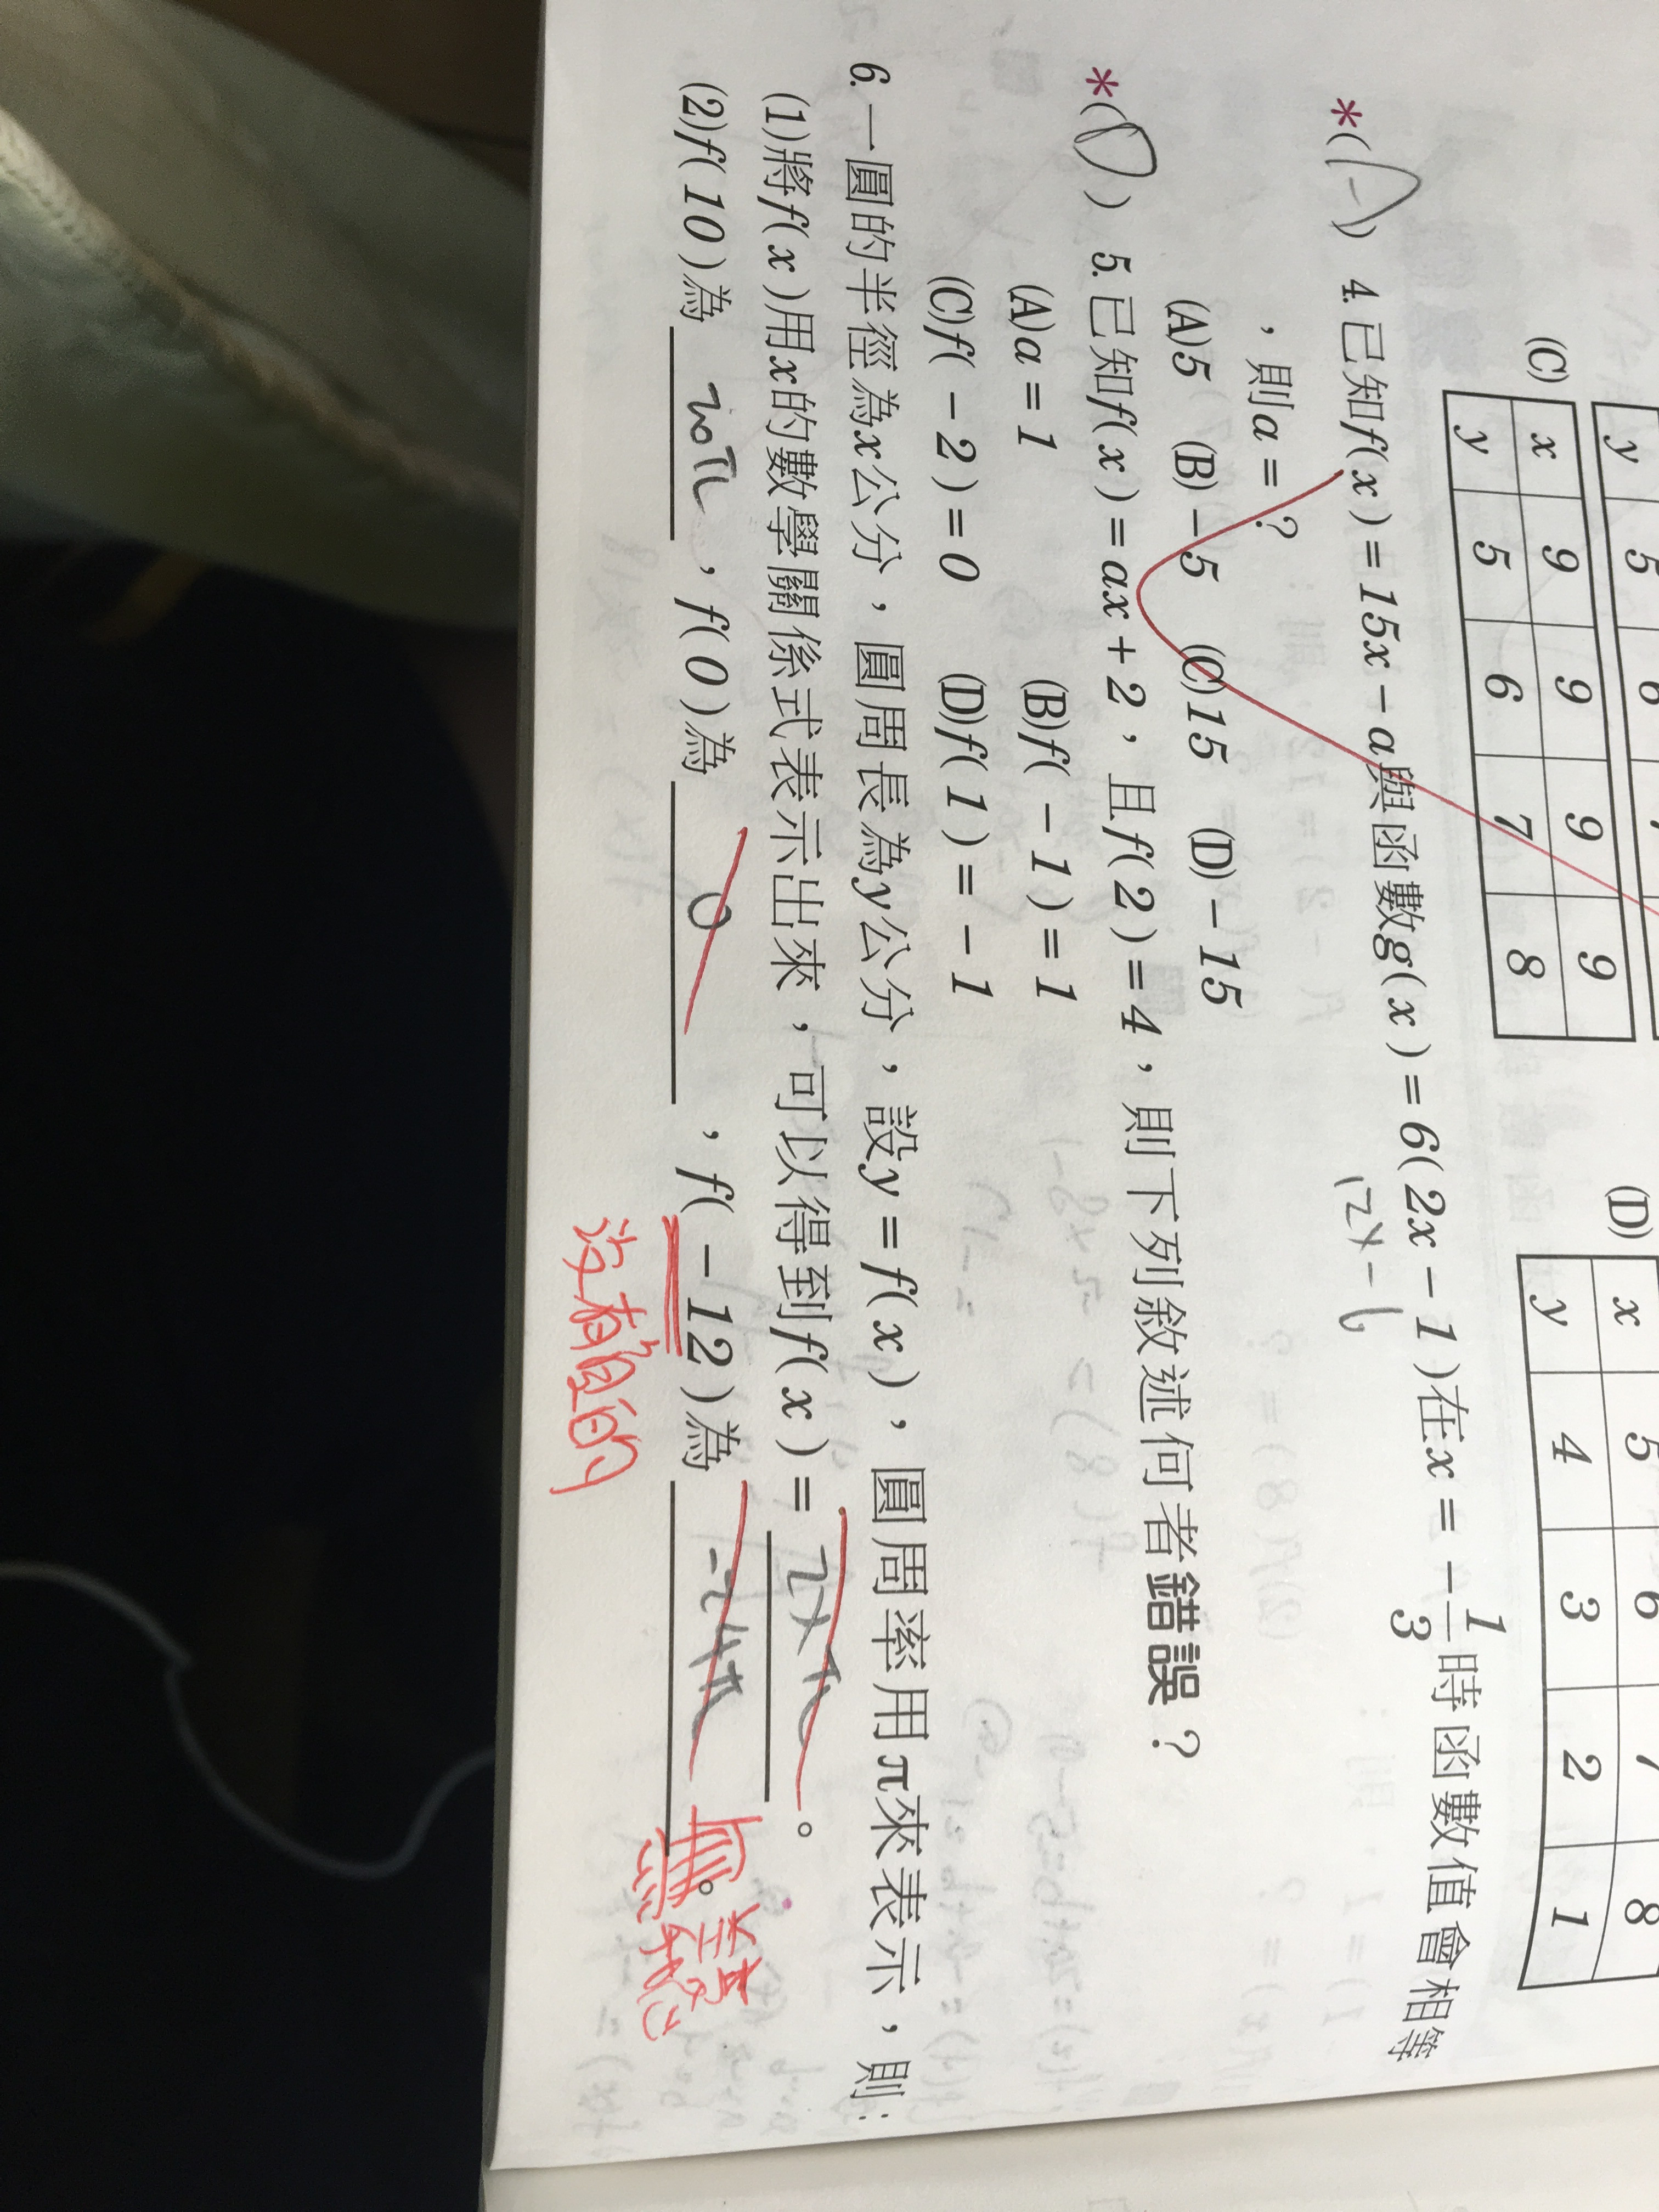 y 5 6 7
(C)
x 9 9 9 9
y 5 6 7 8
(D)
x 5 6 7 8
y 4 3 2 1
*( ) 4.已知f(x)=15x-a與函數g(x)=6(2x-1)在x=-1/3時函數值會相等
12x-6
，則a=？
(A)5 (B)-5 (C)15 (D)-15
*(D) 5.已知f(x)=ax+2，且f(2)=4，則下列敘述何者錯誤？
(A)a=1 (B)f(-1)=1
(C)f(-2)=0 (D)f(1)=-1
6.一圓的半徑為x公分，圓周長為y公分，設y=f(x)，圓周率用π來表示，則：
(1)將f(x)用x的數學關係式表示出來，可以得到f(x)=2xπ。
(2)f(10)為20π，f(0)為0，f(-12)為-24π。無意義
沒有負的